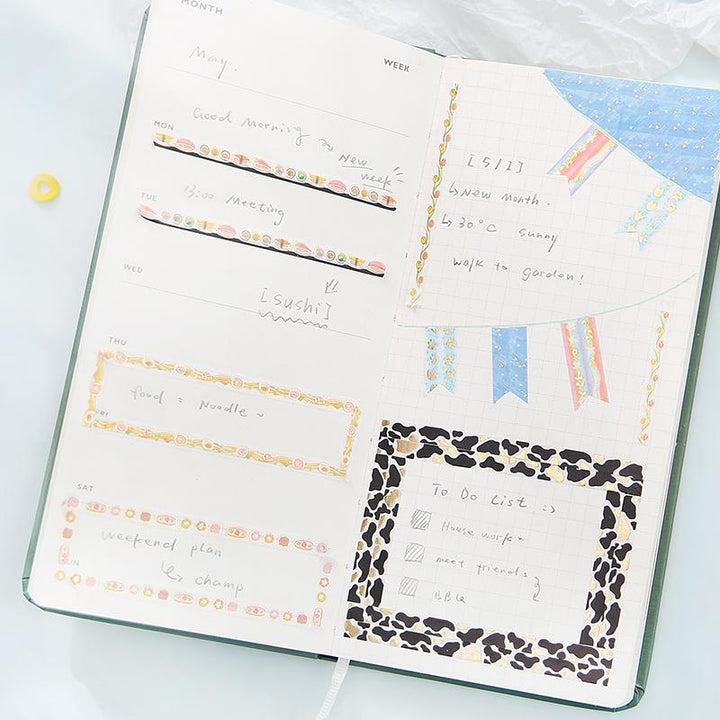 MONTH
May.
WEEK
Good Morning ~
MON
New
week
TUE
13:00 Meeting
WED
[sushi]
THU
food = Noodle ~
FRI
SAT
weekend plan
SUN
↳ champ
[5/1]
↳ New month.
↳ 30°C sunny
walk to garden!
To Do List :>
House work~
meet friends
BBQ